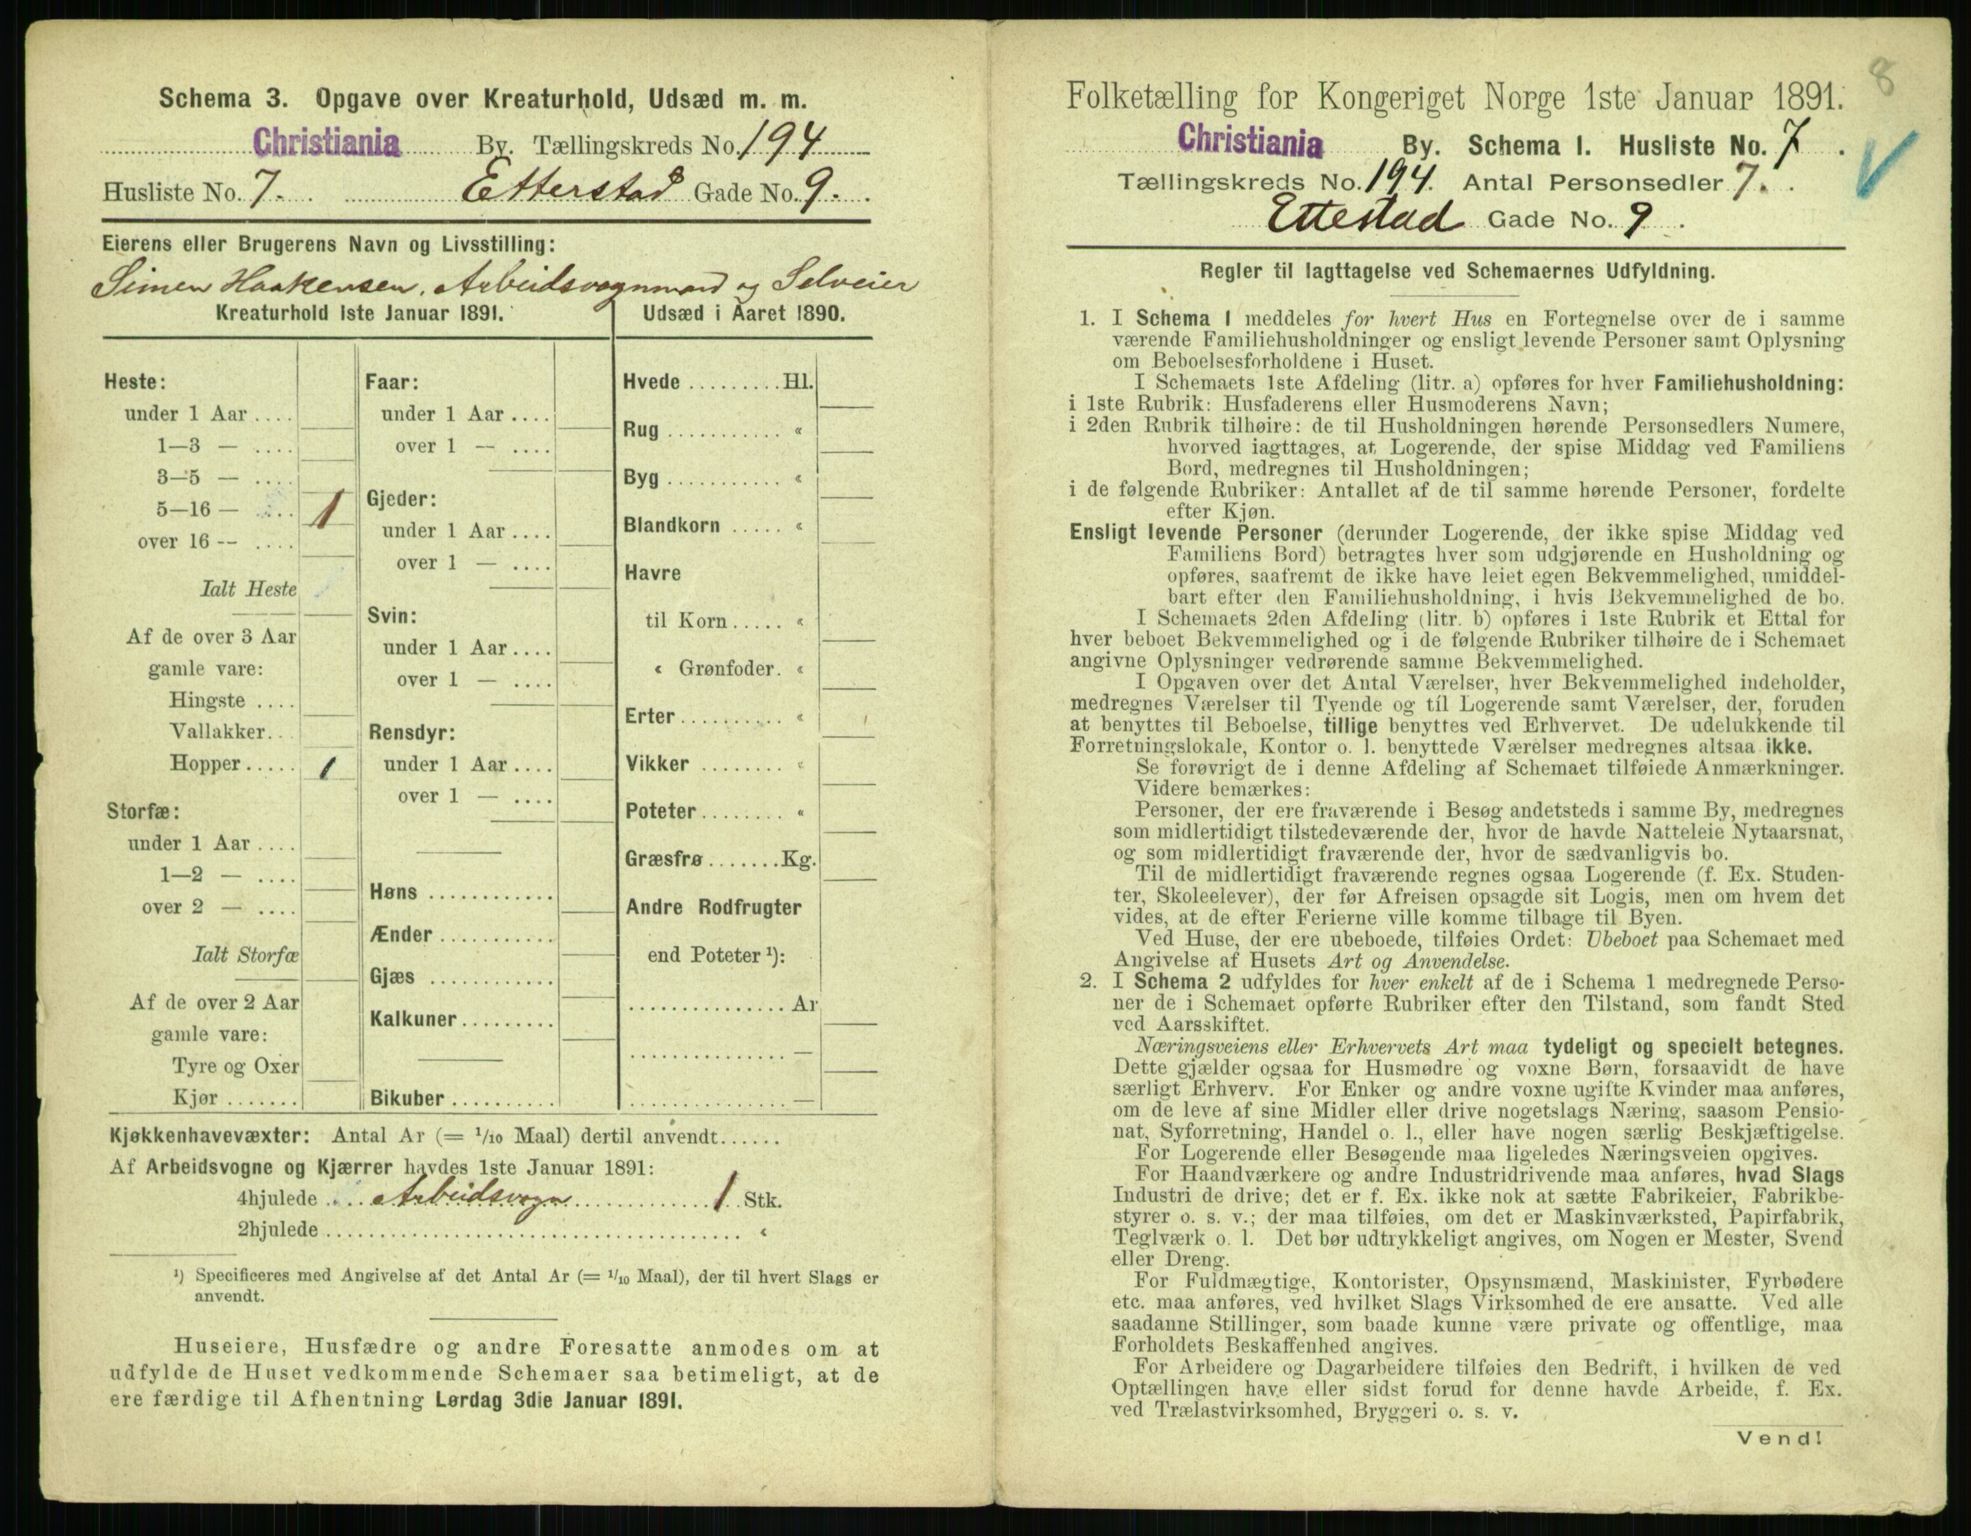 Schema 3. Opgave over Kreaturhold, Udsæd m. m.
Christiania By. Tællingskreds No. 194
Husliste No. 7. Etterstad Gade No. 9.
Eierens eller Brugerens Navn og Livsstilling:
Simen Haakensen, Arbeidsvognmand og Selveier
Kreaturhold 1ste Januar 1891.
Heste:
under 1 Aar ....
1—3 — ....
3—5 — ....
5—16 — .... 1
over 16 -- ....
Ialt Heste
Af de over 3 Aar
gamle vare:
Hingste ....
Vallakker..
Hopper..... 1
Storfæ:
under 1 Aar ....
1—2 — ....
over 2 — ....
Ialt Storfæ
Af de over 2 Aar
gamle vare:
Tyre og Oxer
Kjør .......
Faar:
under 1 Aar ....
over 1 — ....
Gjeder:
under 1 Aar ....
over 1 — ....
Svin:
under 1 Aar ....
over 1 — ....
Rensdyr:
under 1 Aar ....
over 1 — ....
Høns ............
Ænder ...........
Gjæs ............
Kalkuner.........
Bikuber ..........
Udsæd i Aaret 1890.
Hvede .........Hl.
Rug ........... «
Byg ........... «
Blandkorn ..... «
Havre
til Korn..... «
« Grønfoder. «
Erter.......... «
Vikker ........ «
Poteter........ «
Græsfrø .......Kg.
Andre Rodfrugter
end Poteter ¹):
............... Ar
............... —
............... —
Kjøkkenhavevæxter: Antal Ar (= 1/10 Maal) dertil anvendt......
Af Arbeidsvogne og Kjærrer havdes 1ste Januar 1891:
4hjulede .... Arbeidsvogn ............. 1 Stk.
2hjulede ....................................... «
¹) Specificeres med Angivelse af det Antal Ar (= 1/10 Maal), der til hvert Slags er
anvendt.
Huseiere, Husfædre og andre Foresatte anmodes om at
udfylde de Huset vedkommende Schemaer saa betimeligt, at de
ere færdige til Afhentning Lørdag 3die Januar 1891.
8
Folketælling for Kongeriget Norge 1ste Januar 1891.
Christiania By. Schema 1. Husliste No. 7.
Tællingskreds No. 194. Antal Personsedler 7.
Ettestad Gade No. 9.
Regler til Iagttagelse ved Schemaernes Udfyldning.
1. I Schema 1 meddeles for hvert Hus en Fortegnelse over de i samme
værende Familiehusholdninger og ensligt levende Personer samt Oplysning
om Beboelsesforholdene i Huset.
I Schemaets 1ste Afdeling (litr. a) opføres for hver Familiehusholdning:
i 1ste Rubrik: Husfaderens eller Husmoderens Navn;
i 2den Rubrik tilhøire: de til Husholdningen hørende Personsedlers Numere,
hvorved iagttages, at Logerende, der spise Middag ved Familiens
Bord, medregnes til Husholdningen;
i de følgende Rubriker: Antallet af de til samme hørende Personer, fordelte
efter Kjøn.
Ensligt levende Personer (derunder Logerende, der ikke spise Middag ved
Familiens Bord) betragtes hver som udgjørende en Husholdning og
opføres, saafremt de ikke have leiet egen Bekvemmelighed, umiddel-
bart efter den Familiehusholdning, i hvis Bekvemmelighed de bo.
I Schemaets 2den Afdeling (litr. b) opføres i 1ste Rubrik et Ettal for
hver beboet Bekvemmelighed og i de følgende Rubriker tilhøire de i Schemaet
angivne Oplysninger vedrørende samme Bekvemmelighed.
I Opgaven over det Antal Værelser, hver Bekvemmelighed indeholder,
medregnes Værelser til Tyende og til Logerende samt Værelser, der, foruden
at benyttes til Beboelse, tillige benyttes ved Erhvervet. De udelukkende til
Forretningslokale, Kontor o. l. benyttede Værelser medregnes altsaa ikke.
Se forøvrigt de i denne Afdeling af Schemaet tilføiede Anmærkninger.
Videre bemærkes:
Personer, der ere fraværende i Besøg andetsteds i samme By, medregnes
som midlertidigt tilstedeværende der, hvor de havde Natteleie Nytaarsnat,
og som midlertidigt fraværende der, hvor de sædvanligvis bo.
Til de midlertidigt fraværende regnes ogsaa Logerende (f. Ex. Studen-
ter, Skoleelever), der før Afreisen opsagde sit Logis, men om hvem det
vides, at de efter Ferierne ville komme tilbage til Byen.
Ved Huse, der ere ubeboede, tilføies Ordet: Ubeboet paa Schemaet med
Angivelse af Husets Art og Anvendelse.
2. I Schema 2 udfyldes for hver enkelt af de i Schema 1 medregnede Perso-
ner de i Schemaet opførte Rubriker efter den Tilstand, som fandt Sted
ved Aarsskiftet.
Næringsveiens eller Erhvervets Art maa tydeligt og specielt betegnes.
Dette gjælder ogsaa for Husmødre og voxne Børn, forsaavidt de have
særligt Erhverv. For Enker og andre voxne ugifte Kvinder maa anføres,
om de leve af sine Midler eller drive nogetslags Næring, saasom Pensio-
nat, Syforretning, Handel o. l., eller have nogen særlig Beskjæftigelse.
For Logerende eller Besøgende maa ligeledes Næringsveien opgives.
For Haandværkere og andre Industridrivende maa anføres, hvad Slags
Industri de drive; det er f. Ex. ikke nok at sætte Fabrikeier, Fabrikbe-
styrer o. s. v.; der maa tilføies, om det er Maskinværksted, Papirfabrik,
Teglværk o. l. Det bør udtrykkeligt angives, om Nogen er Mester, Svend
eller Dreng.
For Fuldmægtige, Kontorister, Opsynsmænd, Maskinister, Fyrbødere
etc. maa anføres, ved hvilket Slags Virksomhed de ere ansatte. Ved alle
saadanne Stillinger, som baade kunne være private og offentlige, maa
Forholdets Beskaffenhed angives.
For Arbeidere og Dagarbeidere tilføies den Bedrift, i hvilken de ved
Optællingen have eller sidst forud for denne havde Arbeide, f. Ex.
ved Trælastvirksomhed, Bryggeri o. s. v.
Vend!